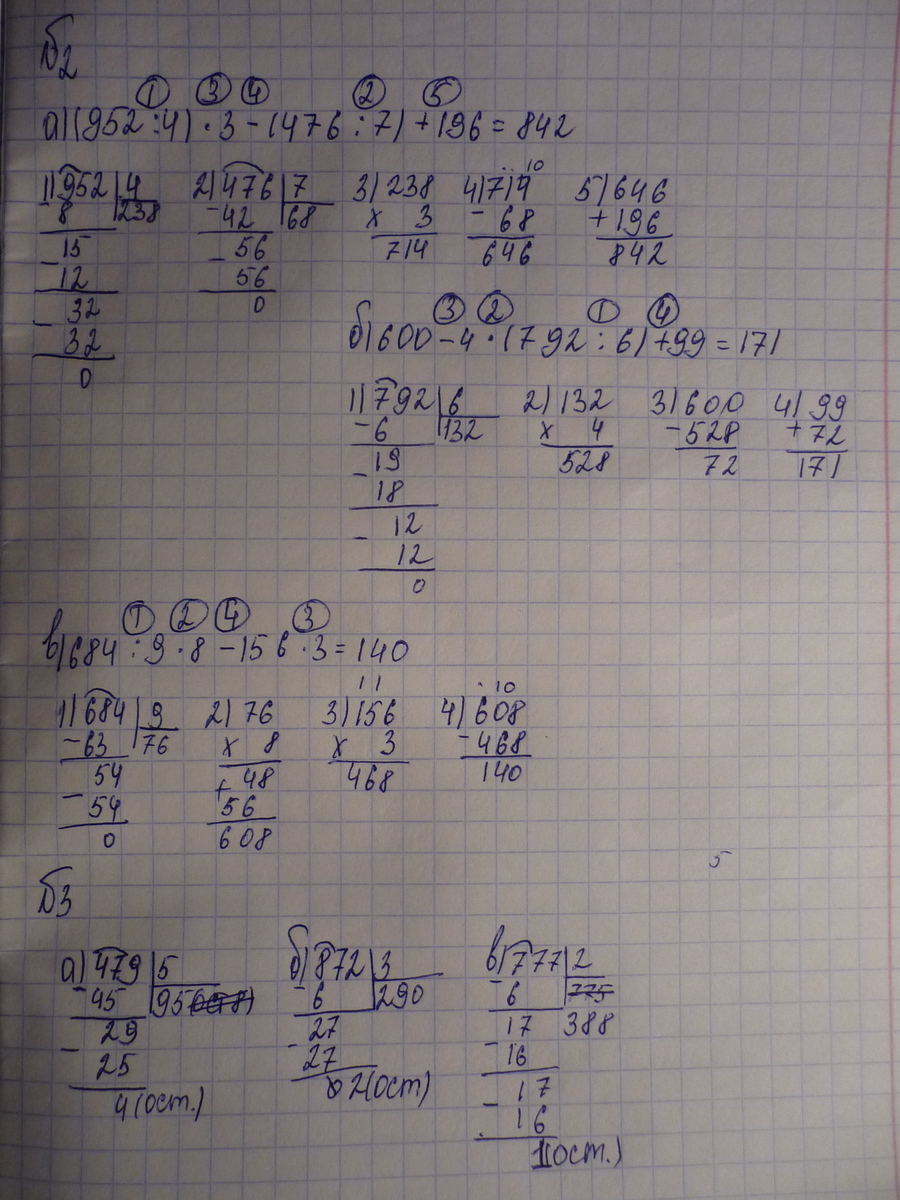 №2
① ③ ④ ② ⑤
а) (952 : 4) · 3 - (476 : 7) + 196 = 842
1) 952 | 4 2) 476 | 7 3) 238 4) 714 10 5) 646
- 8 | 238 - 42 | 68 x 3 - 68 + 196
- 15 - 56 714 646 842
12 56
- 32 0
32
0
③ ② ① ④
б) 600 - 4 · (792 : 6) + 99 = 171
1) 792 | 6 2) 132 3) 600 4) 99
- 6 | 132 x 4 - 528 + 72
- 19 528 72 171
18
- 12
12
0
① ② ④ ③
в) 684 : 9 · 8 - 156 · 3 = 140
1 1 · 10
1) 684 | 9 2) 76 3) 156 4) 608
- 63 | 76 x 8 x 3 - 468
- 54 + 48 468 140
54 56
0 608
5
№3
а) 479 | 5 б) 872 | 3 в) 777 | 2
- 45 | 95 - 6 | 290 - 6 | 775
- 29 - 27 - 17 388
25 27 16
4 (ост.) 0 2 (ост) - 17
16
1 (ост.)